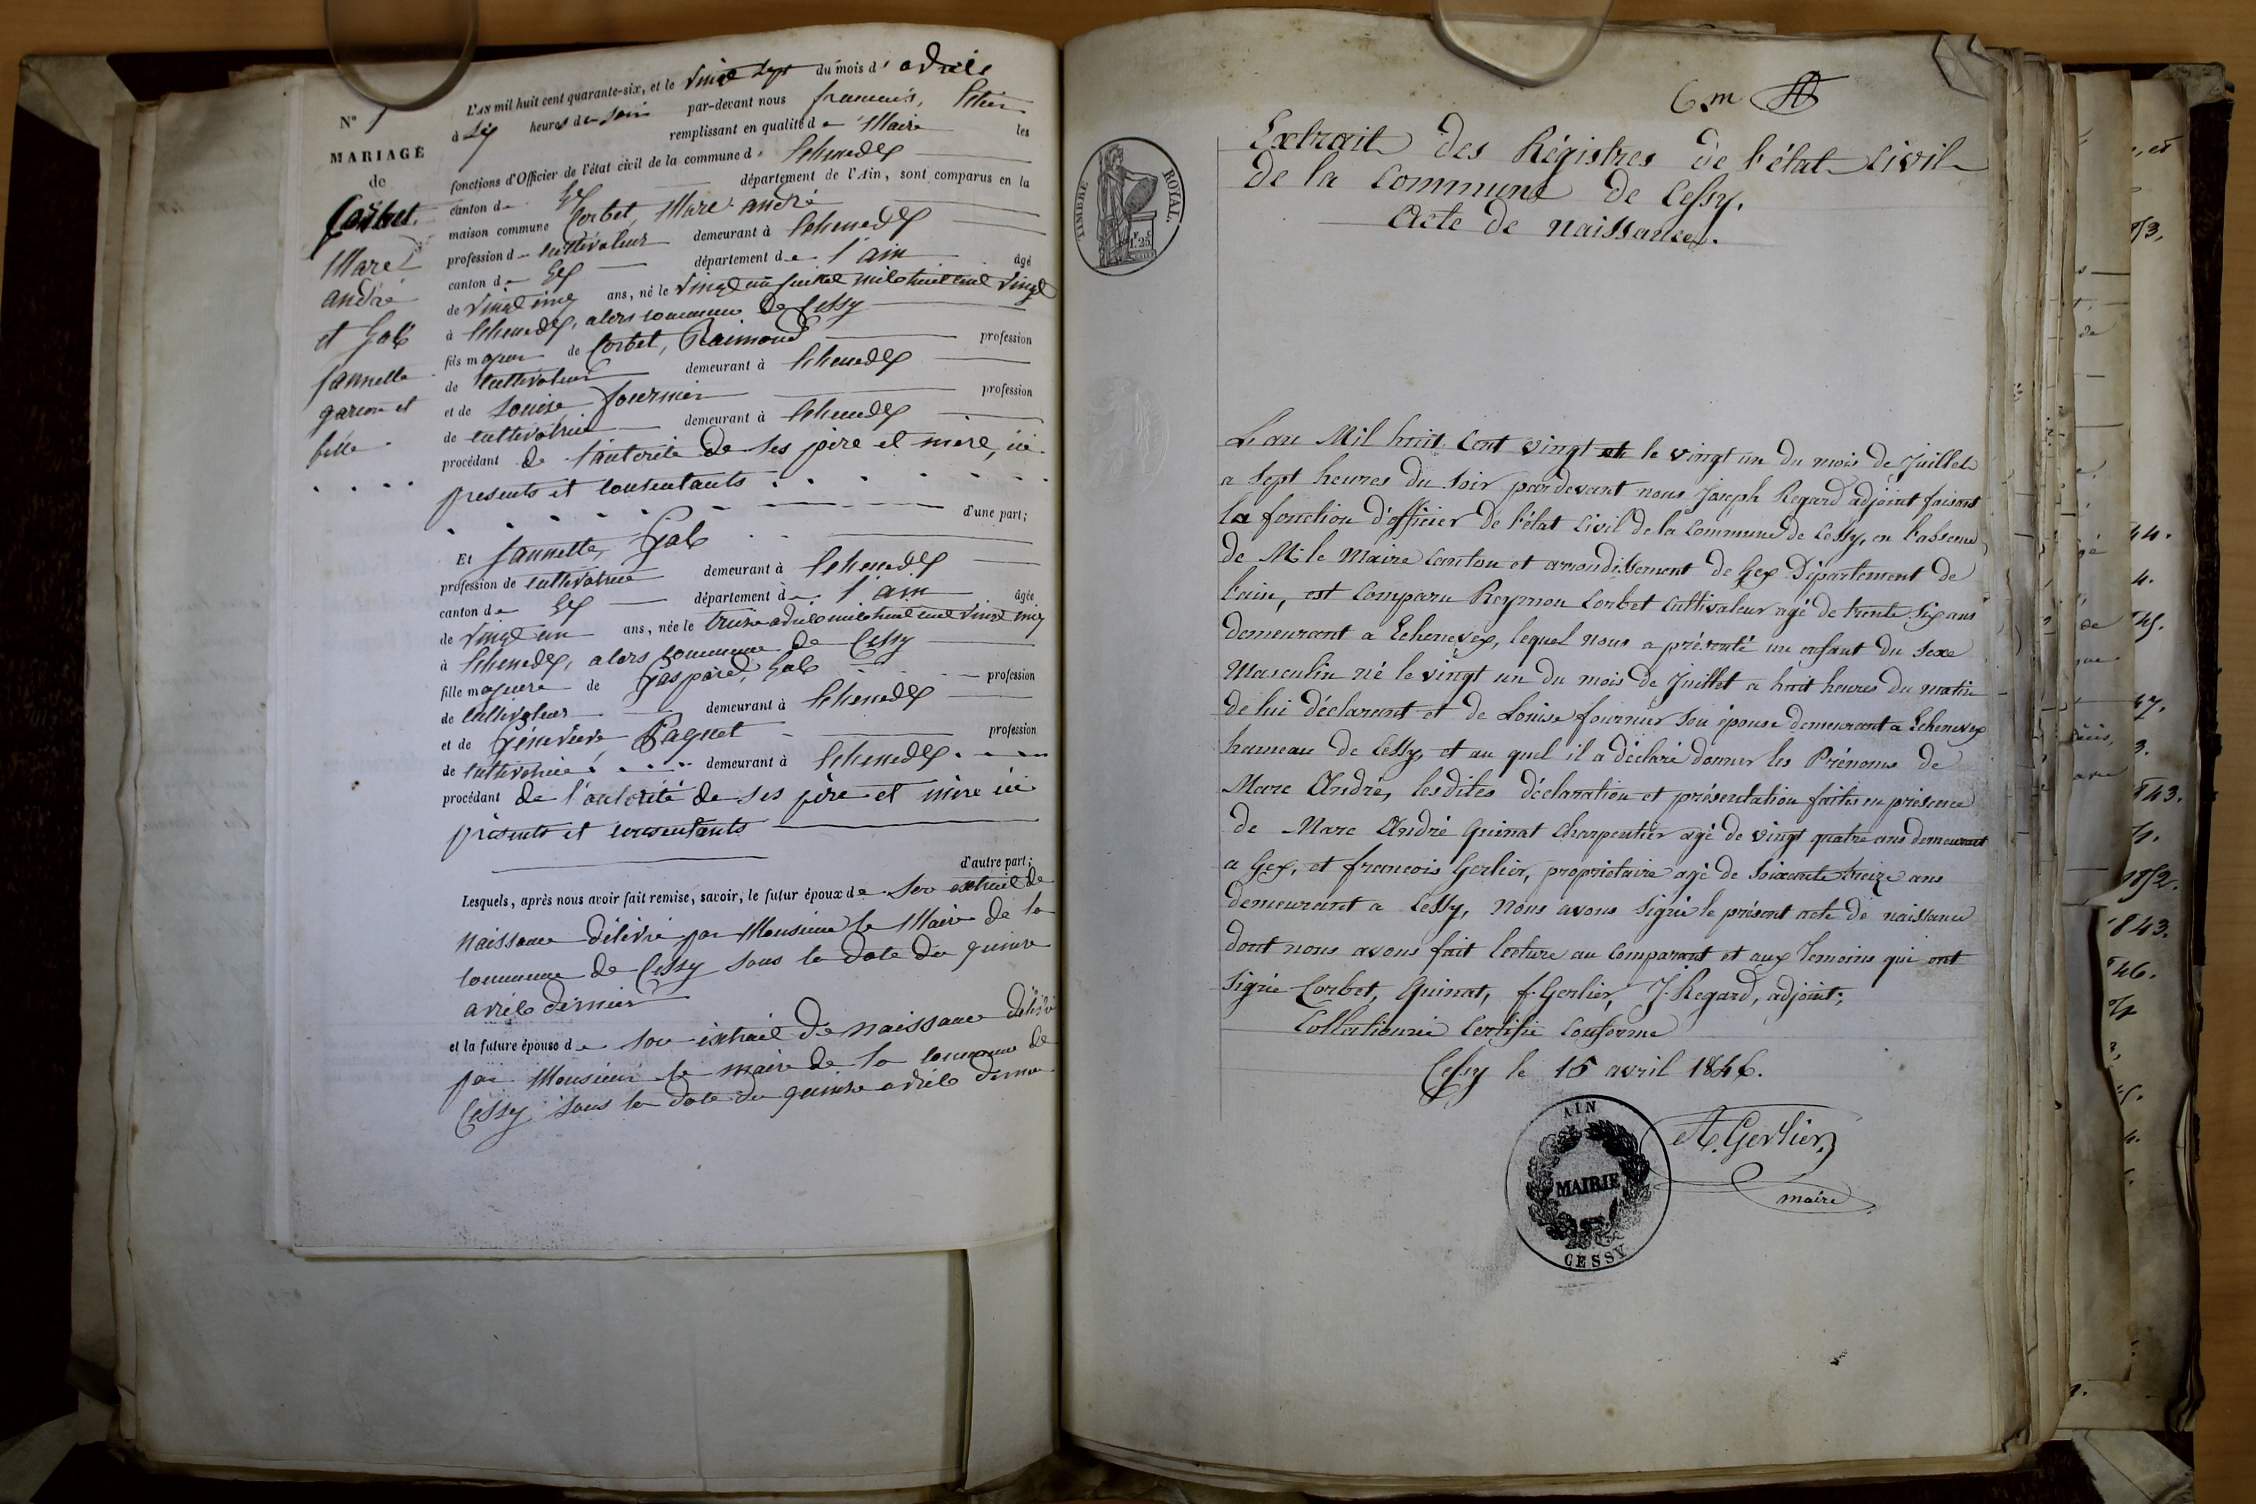 N° 1
MARIAGE
de
Corbet
Marc
andré
et Gal
Jannette
garcon et
fille
L'AN mil huit cent quarante-six, et le vingt sept du mois d' avril
à six heures du soir par-devant nous francois,
remplissant en qualité de Maire les
fonctions d'Officier de l'état civil de la commune d' Echenevex
canton de Gex département de l'Ain, sont comparus en la
maison commune Corbet, Marc andré
profession de cultivateur demeurant à Echenevex
canton de Gex département de l'ain âgé
de vingt cinq ans, né le vingt un juillet mil huit cent vingt
à Echenevex, alors commune de Cessy
fils majeur de Corbet, Raimond profession
de cultivateur demeurant à Echenevex
et de Louise fournier profession
de cultivatrice demeurant à Echenevex
procédant de l'autorité de ses père et mere, ici
presents et consentants
d'une part;
Et Jannette, Gal
profession de cultivatrice demeurant à Echenevex
canton de Gex département de l'ain âgée
de vingt un ans, née le treize avril mil huit cent vingt cinq
à Echenevex, alors commune de Cessy
fille majeure de Gaspard, Gal profession
de cultivateur demeurant à Echenevex
et de Génevieve Paquet profession
de cultivatrice demeurant à Echenevex
procédant de l'autorité de ses père et mère ici
présents et consentants
d'autre part;
Lesquels, après nous avoir fait remise, savoir, le futur époux de son extrait de
naissance délivré par Monsieur le Maire de la
commune de Cessy sous la date du quinze
avril dernier
et la future épouse de son extrait de naissance délivré
par Monsieur le maire de la commune de
Cessy sous la date du quinze avril dernier
6.m
TIMBRE ROYAL.
1.25
Extrait des Régistres de l'état civil
de la commune de Cessy.
Acte de naissance.
L'an Mil huit Cent vingt et le vingt un du mois de Juillet
a sept heures du soir pardevant nous Joseph Regard adjoint faisant
la fonction d'officier de l'état civil de la commune de Cessy, en l'absence
de Mr le Maire canton et arrondissement de Gex Département de
l'ain, est comparu Reymon Corbet Cultivateur agé de trente six ans
demeurant a Echenevex, lequel nous a présenté un enfant du sexe
Masculin né le vingt un du mois de Juillet a huit heures du matin
de lui déclarant et de Louise fournier son épouse demeurant a Echenevex
hameau de Cessy, et au quel il a déclaré donner les Prénoms de
Marc André, lesdites déclaration et présentation faites en présence
de Marc André Guinat charpentier agé de vingt quatre ans demeurant
a Gex, et francois Gerlier, propriétaire agé de soixante treize ans
demeurant a Cessy, nous avons signé le présent acte de naissance
dont nous avons fait lecture au comparant et aux témoins qui ont
signé Corbet, Guinat, f. Gerlier, J. Regard, adjoint;
Collationné Certifié Conforme
Cessy le 15 avril 1846.
A. Gerlier,
maire
AIN
MAIRIE
CESSY